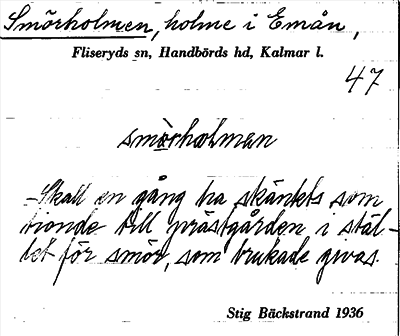 Smörholmen, holme i Emån,
Fliseryds sn, Handbörds hd, Kalmar l.
47
smòrholmen
Skall en gång ha skänkts som
tionde till prästgården i stäl-
let för smör, som brukade givas.
Stig Bäckstrand 1936